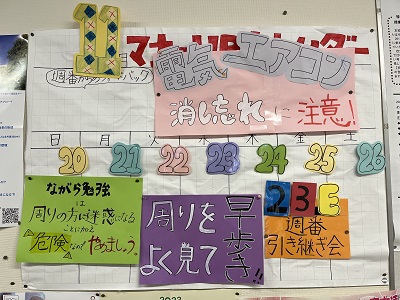 11
マナーUPカレンダー
電気 エアコン
消し忘れに注意!
日 月 火 水 木 金 土
20 21 22 23 24 25 26
ながら勉強
は
周りの方に迷惑になる
ことに加え
危険なので やめましょう
周りを
よく見て
早歩き!!
23E
週番
引き継ぎ会
2023